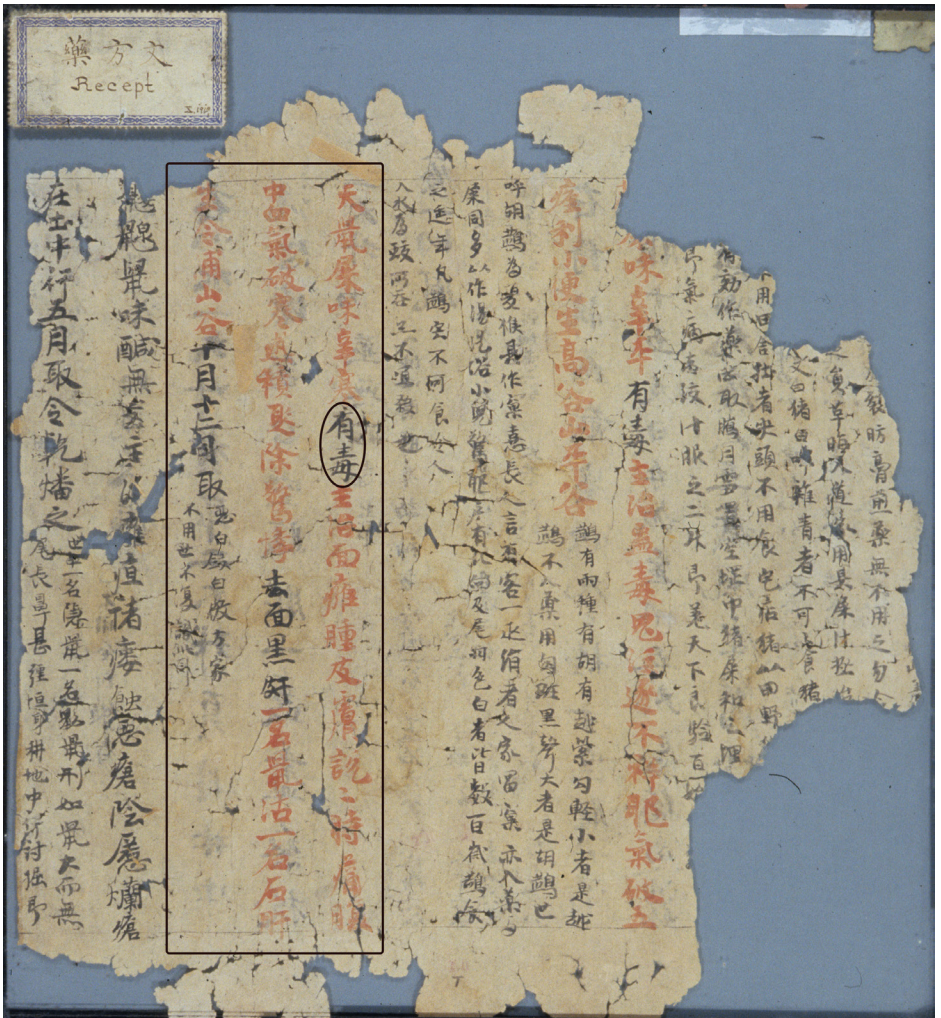 藥方文
Recept
裂肪膏煎藥無不用之勿令
猪白蹄雜青者不可食猪
不用田舍牯者尖頭不用食
有効作藥當取臘月雪空中猪屎和之埋
即氣病絞汁服之二升即差天下良驗百
屎味辛平有毒主治蠱毒鬼注逐不祥耶氣破五
癃利小便生高谷山平谷
鷰有兩種有胡有越紫匈輕小者是越
鷰不入藥用匈斑黑聲大者是胡鷰也
呼胡鷰為夏侯其作窠憙長人言有容一疋絹者令家富窠亦入藥用
屎同多以作湯洗浴小兒驚耶户有北向及尾羽色白者皆數百歲鷰食
之延年凡鷰宍不可食令人
入水為蛟所吞亦不宜殺也
天鼠屎味辛寒有毒主治面癰腫皮膚說〻時痛腹
中血氣破寒熱積聚除驚悸去面黑皯一名鼠沽一名石肝
生合甫山谷十月十二月取
惡白歛白微方家
不用世不復識此耳
鼹鼠味醎無毒主治癰疽諸瘻蝕惡瘡陰䘌爛瘡
在土中行五月取令乾燔之
世中一名隱鼠一名鼢鼠形如鼠大而無
尾長鼻甚强恒穿耕地中行討掘即